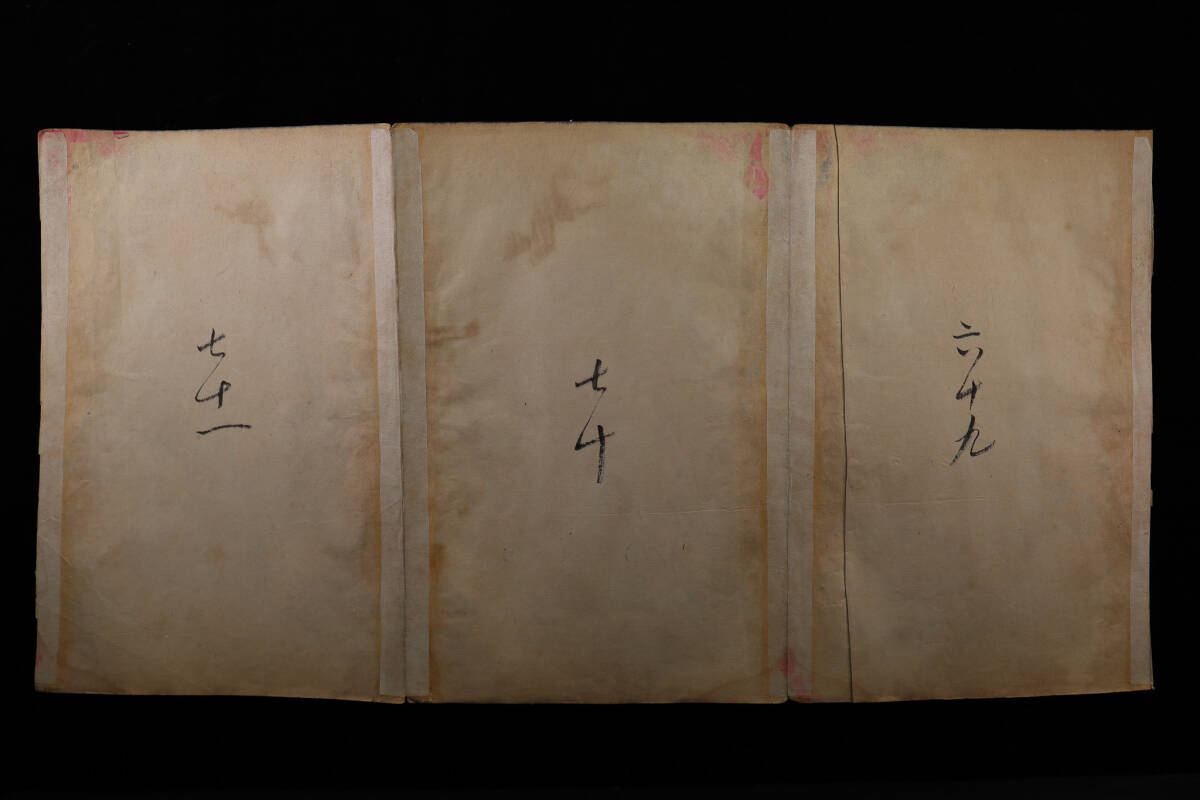 六十九
七十
七十一